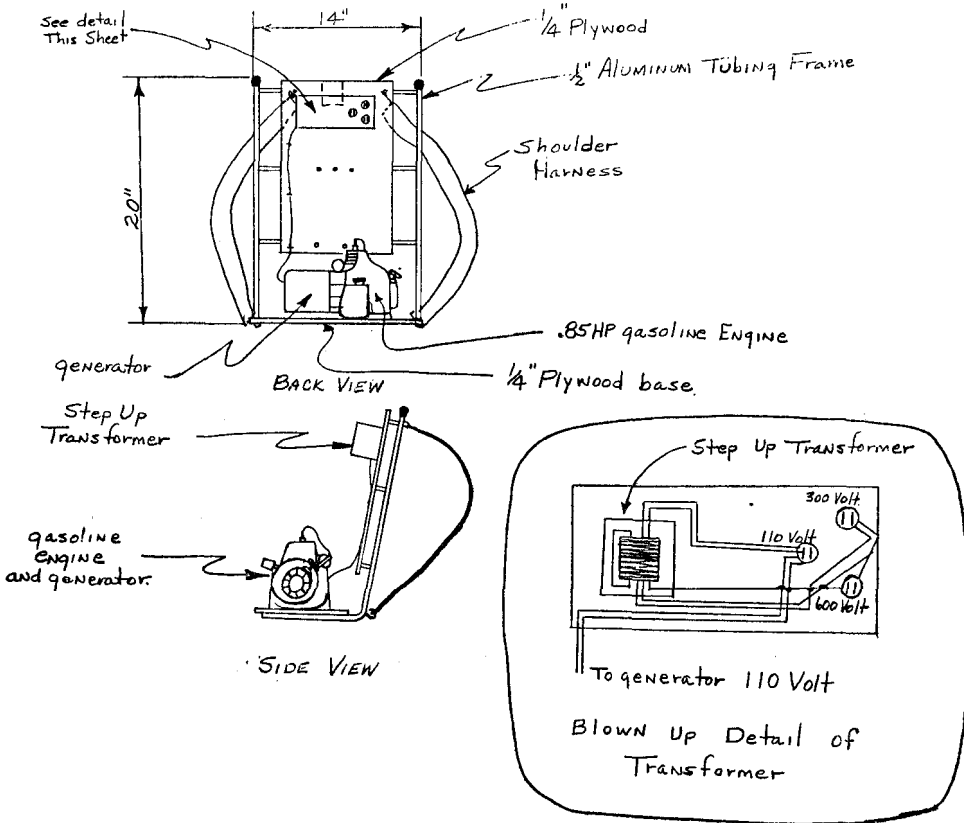 see detail
This Sheet
14"
1/4" Plywood
1/2" Aluminum Tubing Frame
20"
Shoulder
Harness
generator
BACK VIEW
.85HP gasoline Engine
1/4" Plywood base.
Step Up
Transformer
gasoline
engine
and generator.
SIDE VIEW
Step Up Transformer
300 Volt
110 Volt
600 Volt
To generator 110 Volt
Blown Up Detail of
Transformer